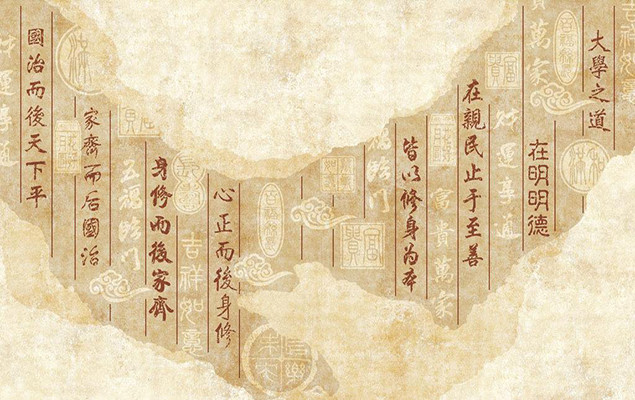 吉祥如意
大學之道
貴萬家
在明明德
運享通
在親民止于至善
富貴萬家
皆以修身為本
臨門
富貴
心正而後身修
吉祥如意
身修而後家齊
五福臨門
家齊而后國治
國治而後天下平
運享通